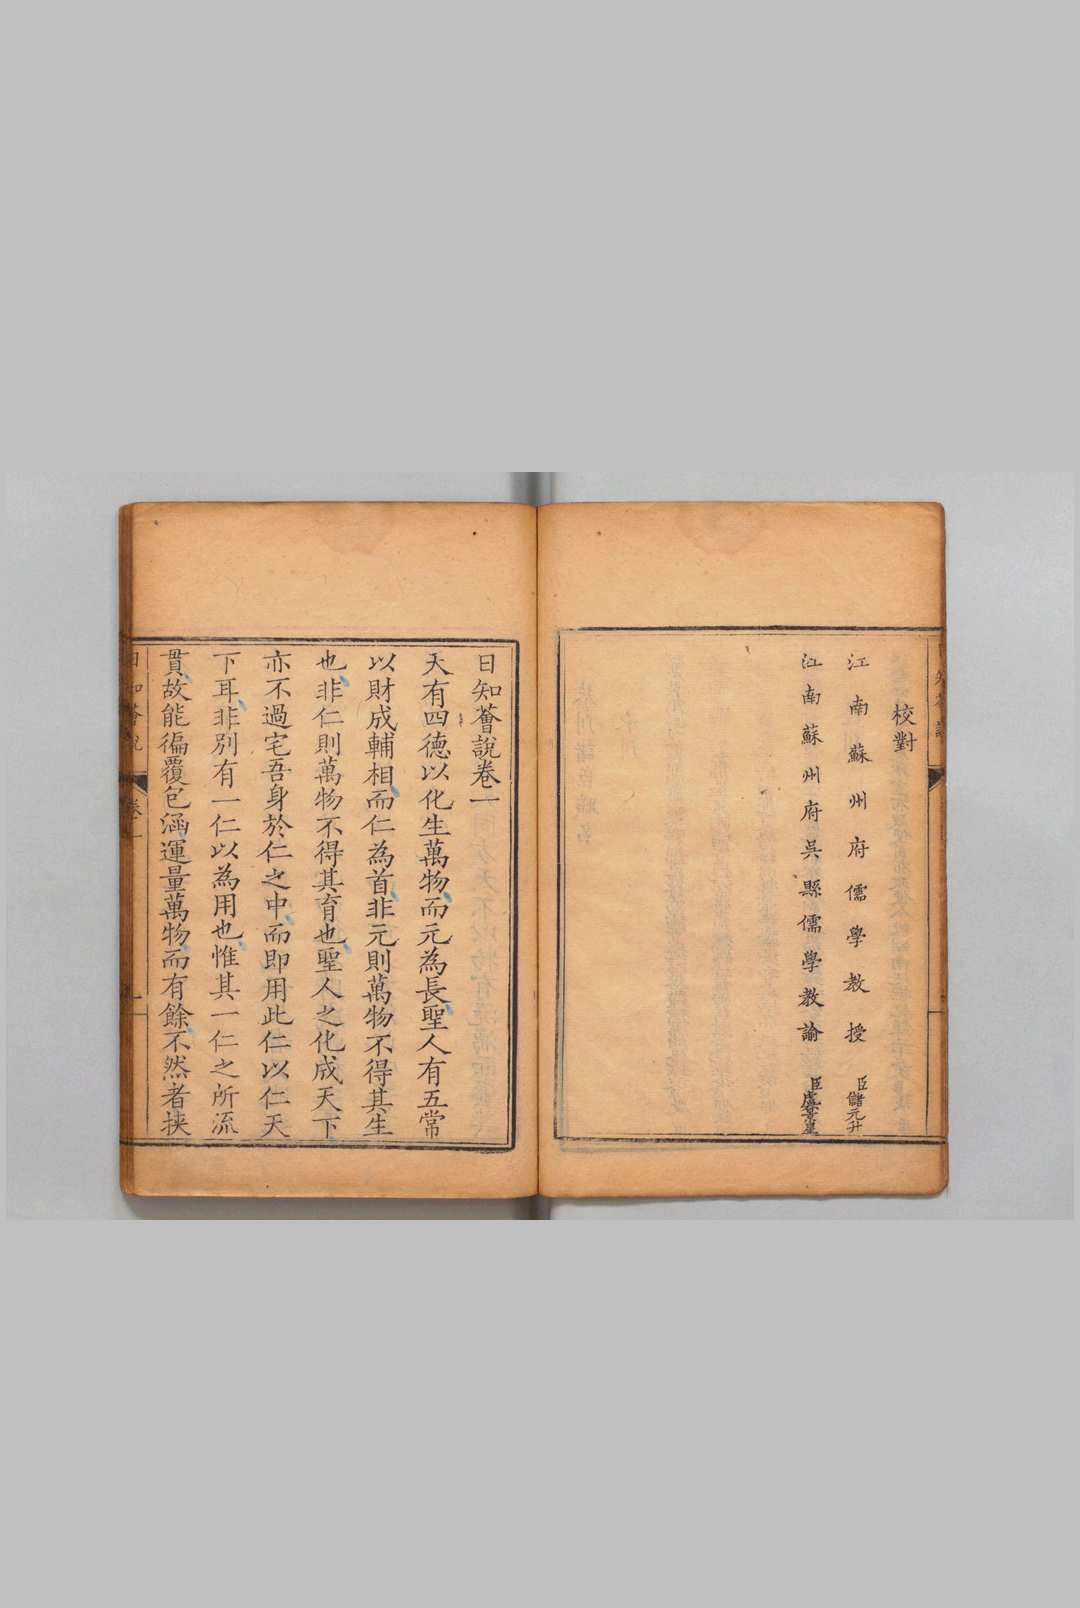 校對
江南蘇州府儒學教授臣儲元升
江南蘇州府吳縣儒學教諭臣盧
日知薈說卷一
天有四德以化生萬物而元為長聖人有五常
以財成輔相而仁為首非元則萬物不得其生
也非仁則萬物不得其育也聖人之化成天下
亦不過宅吾身於仁之中而即用此仁以仁天
下耳非別有一仁以為用也惟其一仁之所流
貫故能徧覆包涵運量萬物而有餘不然者挾
日知薈說
卷一